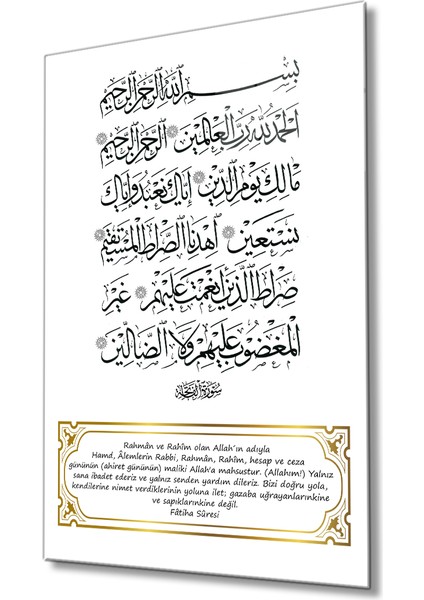 بِسْمِ اللَّهِ الرَّحْمَنِ الرَّحِيمِ
الْحَمْدُ لِلَّهِ رَبِّ الْعَالَمِينَ ۞ الرَّحْمَنِ الرَّحِيمِ ۞
مَالِكِ يَوْمِ الدِّينِ ۞ إِيَّاكَ نَعْبُدُ وَإِيَّاكَ
نَسْتَعِينُ ۞ اهْدِنَا الصِّرَاطَ الْمُسْتَقِيمَ ۞
صِرَاطَ الَّذِينَ أَنْعَمْتَ عَلَيْهِمْ ۞ غَيْرِ
الْمَغْضُوبِ عَلَيْهِمْ وَلَا الضَّالِّينَ ۞
سورة الفاتحة
Rahmân ve Rahîm olan Allah'ın adıyla
Hamd, Âlemlerin Rabbi, Rahmân, Rahîm, hesap ve ceza
gününün (ahiret gününün) maliki Allah'a mahsustur. (Allahım!) Yalnız
sana ibadet ederiz ve yalnız senden yardım dileriz. Bizi doğru yola,
kendilerine nimet verdiklerinin yoluna ilet; gazaba uğrayanlarınkine
ve sapıklarınkine değil.
Fâtiha Sûresi